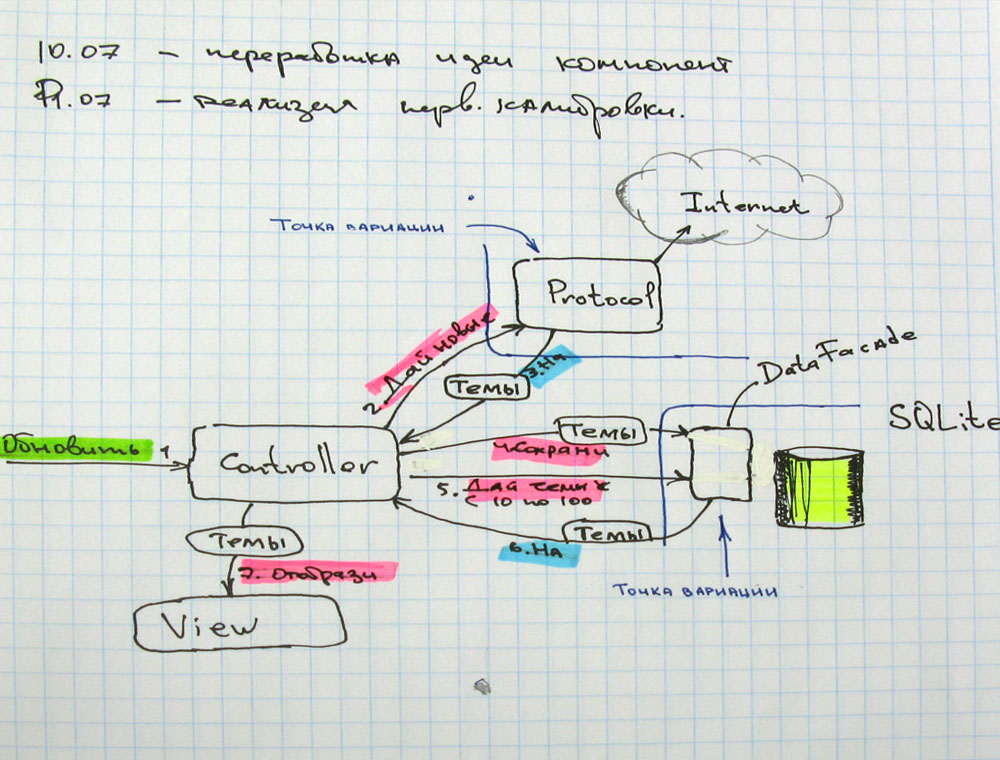 10.07 - переработка идеи компонент
11.07 - реализация перв. калибровки.
Internet
Точка вариации
Protocol
2. Дай новые
3. На
Темы
DataFacade
SQLite
Обновить 1
Controller
Темы
4. Сохрани
5. Дай темы
с 10 по 100
Темы
6. На
Темы
7. Отобрази
Точка вариации
View